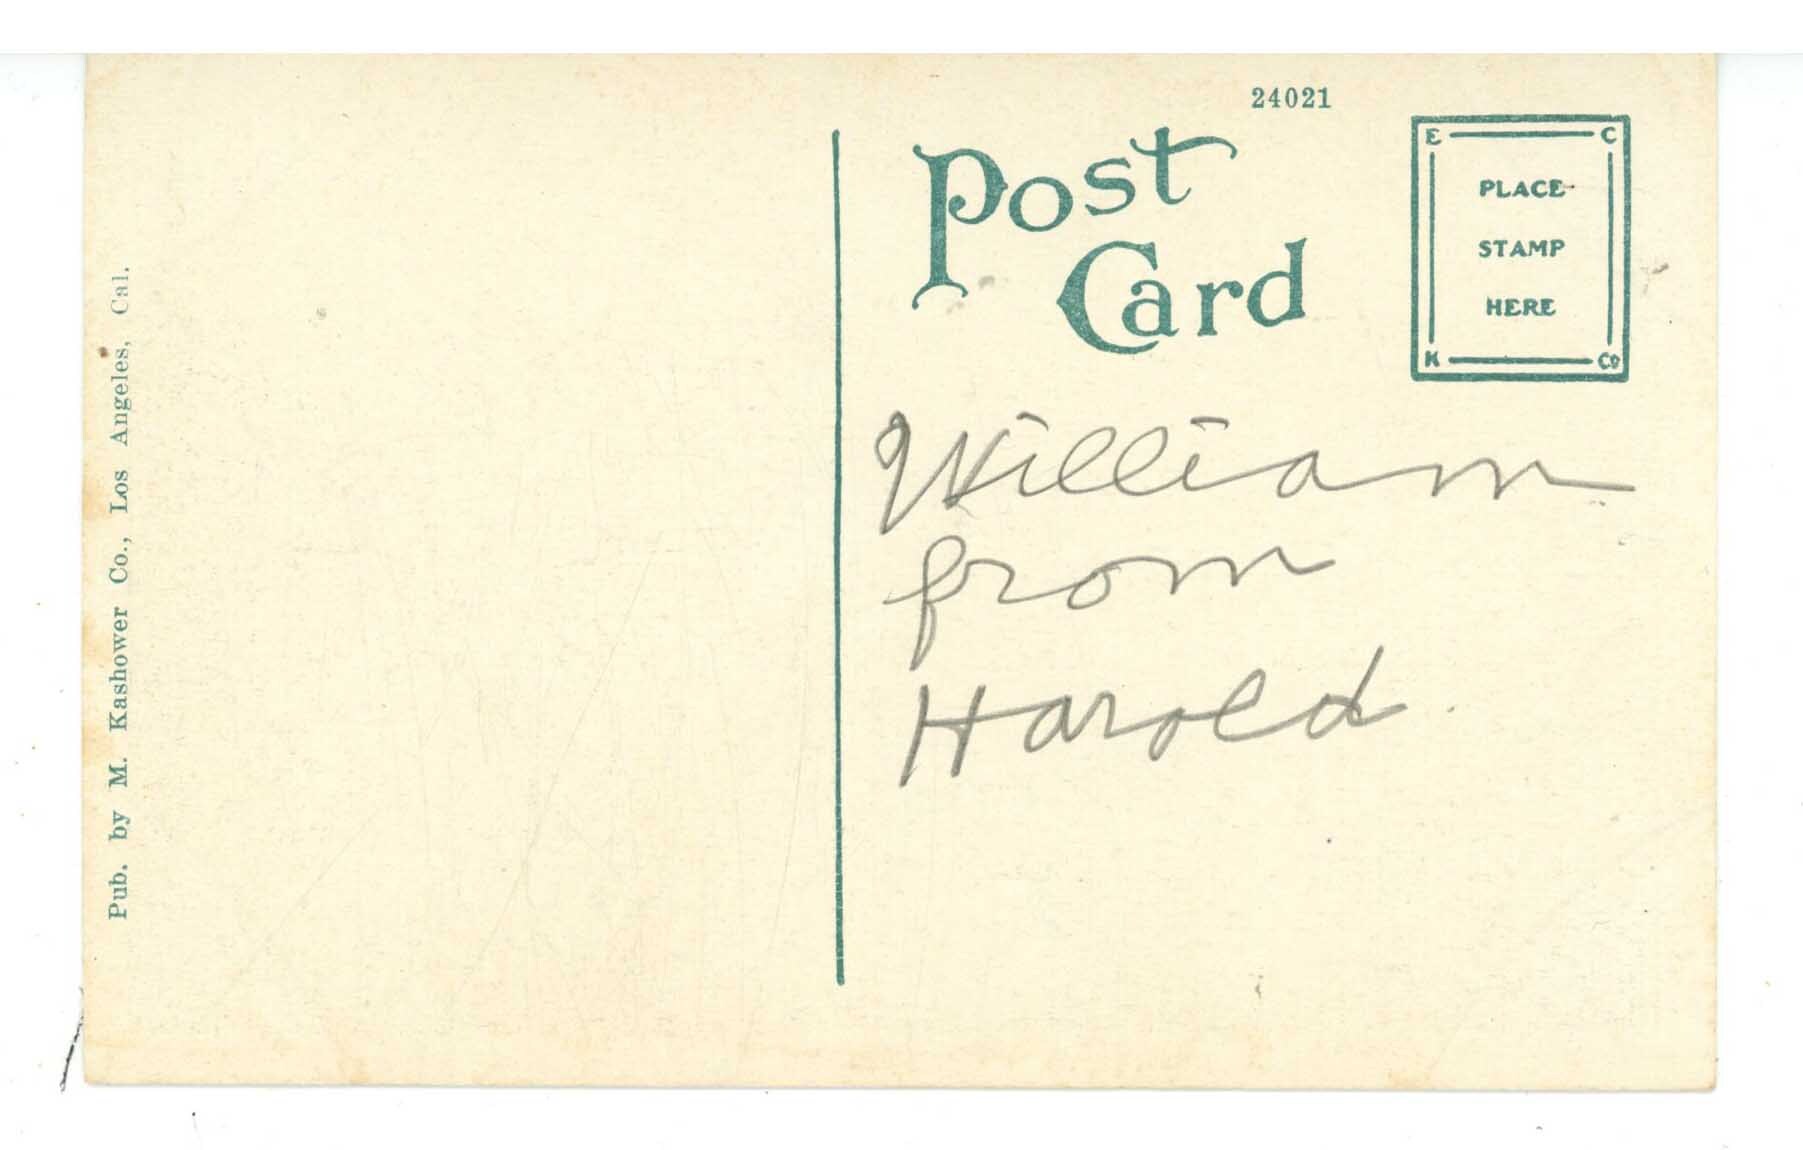 24021
Post
Card
E C
PLACE
STAMP
HERE
K Co
Pub. by M. Kashower Co., Los Angeles, Cal.
William
from
Harold